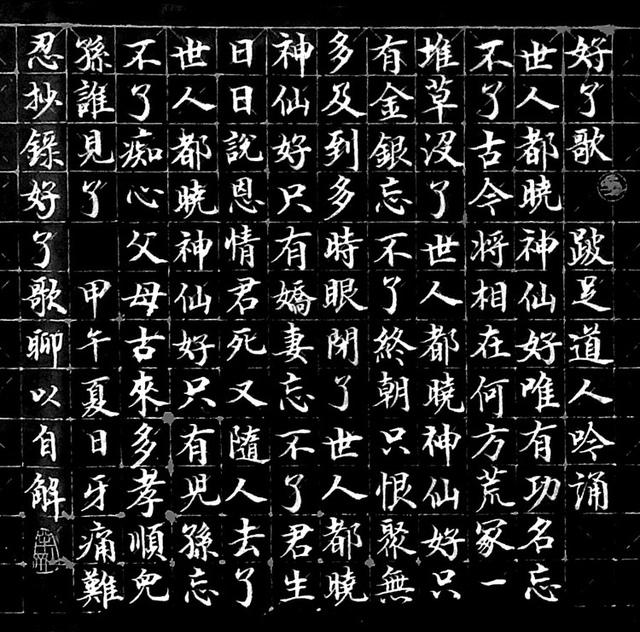 好了歌 跛足道人吟誦
世人都曉神仙好唯有功名忘
不了古今將相在何方荒冢一
堆草没了世人都曉神仙好只
有金銀忘不了終朝只恨聚無
多及到多時眼閉了世人都曉
神仙好只有嬌妻忘不了君生
日日說恩情君死又隨人去了
世人都曉神仙好只有兒孫忘
不了痴心父母古來多孝順兒
孫誰見了 甲午夏日牙痛難
忍抄錄好了歌聊以自解